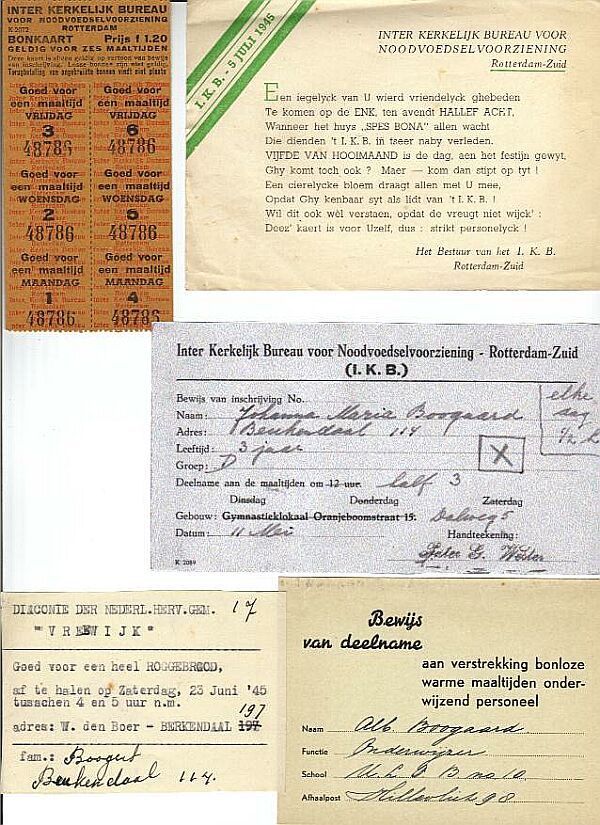 INTER KERKELIJK BUREAU
VOOR NOODVOEDSELVOORZIENING
K 2072 ROTTERDAM
BONKAART Prijs f 1.20
GELDIG VOOR ZES MAALTIJDEN
Deze kaart is alleen geldig op vertoon van bewijs
van inschrijving. Losse bonnen zijn niet geldig.
Terugbetaling van ongebruikte bonnen vindt niet plaats
Goed voor een maaltijd VRIJDAG 3 48786
Goed voor een maaltijd VRIJDAG 6 48786
Goed voor een maaltijd WOENSDAG 2 48786
Goed voor een maaltijd WOENSDAG 5 48786
Goed voor een maaltijd MAANDAG 1 48786
Goed voor een maaltijd MAANDAG 4 48786
I. K. B. - 5 JULI 1945
INTER KERKELIJK BUREAU VOOR
NOODVOEDSELVOORZIENING
Rotterdam-Zuid
Een iegelyck van U wierd vriendelyck ghebeden
Te komen op de ENK, ten avendt HALLEF ACHT,
Wanneer het huys „SPES BONA" allen wacht
Die dienden 't I. K. B. in tseer naby verleden.
VIJFDE VAN HOOIMAAND is de dag, aen het festijn gewyt,
Ghy komt toch ook ? Maer — kom dan stipt op tyt !
Een cierelycke bloem draagt allen met U mee,
Opdat Ghy kenbaar syt als lidt van 't I. K. B. !
Wil dit ook wèl verstaen, opdat de vreugt niet wijck' :
Deez' kaert is voor Uzelf, dus : strikt personelyck !
Het Bestuur van het I. K. B.
Rotterdam-Zuid
Inter Kerkelijk Bureau voor Noodvoedselvoorziening - Rotterdam-Zuid
(I. K. B.)
Bewijs van inschrijving No.
elke
dag
Naam: Johanna Maria Boogaard
Adres: Beukendaal 114
Leeftijd: 3 jaar
X
Groep: D
Deelname aan de maaltijden om 12 uur. half 3
Dinsdag Donderdag Zaterdag
Gebouw: Gymnastieklokaal Oranjeboomstraat 15. Dalweg 5
Datum: 11 Mei Handteekening:
K 2089
DIACONIE DER NEDERL.HERV.GEM. 17
"VREEWIJK"
Goed voor een heel ROGGEBROOD,
af te halen op Zaterdag, 23 Juni '45
tusschen 4 en 5 uur n.m.
197
adres: W. den Boer - BERKENDAAL 197
fam.: Boogert
Beukendaal 114.
Bewijs
van deelname
aan verstrekking bonloze
warme maaltijden onder-
wijzend personeel
Naam Alb. Boogaard
Functie Onderwijzer
School U.L.O. B no 10
Afhaalpost Hillevliet 98